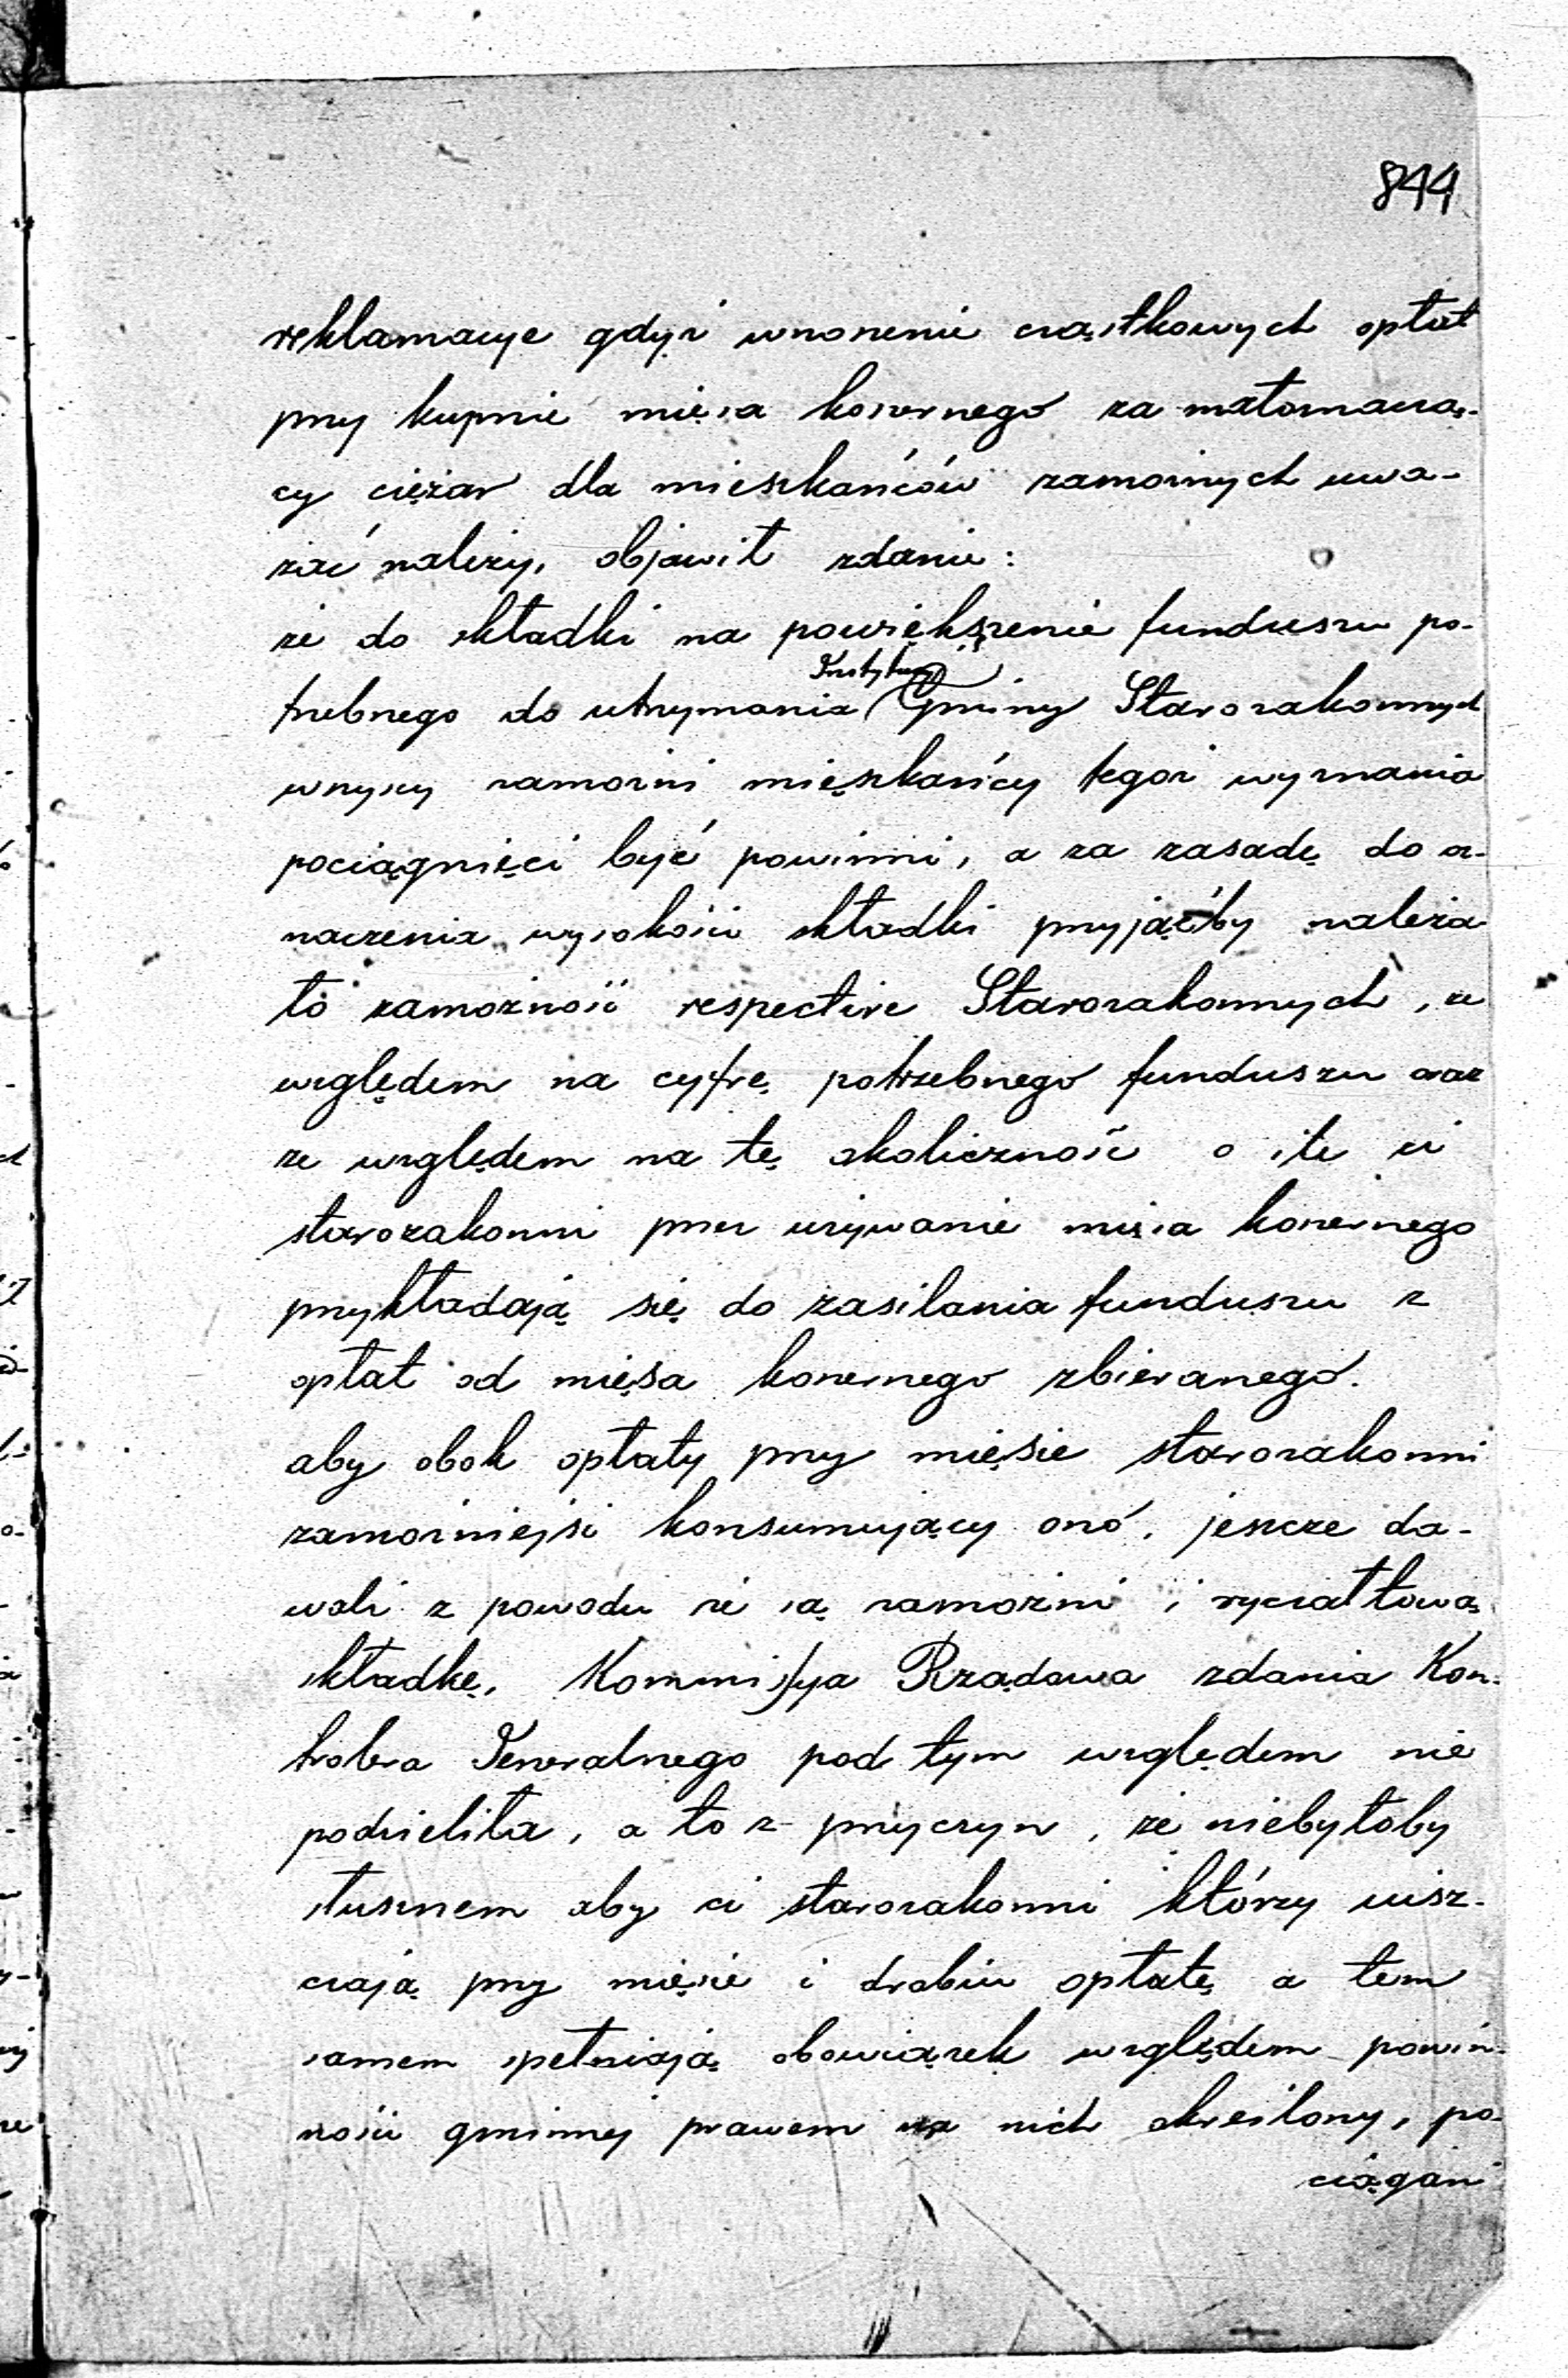 844
reklamacye gdyż wnoszenie cząstkowych opłat
przy kupnie mięsa koszernego za małoznaczą-
cy ciężar dla mieszkańców zamożnych uwa-
żać należy, objawił zdanie:
że do składki na powiększenie funduszu po-
trzebnego do utrzymania (Gminy Starozakonnych
Instytucyj
wszyscy zamożni mieszkańcy tegoż wyznania
pociągnięci być powinni, a za zasadę do oz-
naczenia wysokości składki przyjąćby należa-
ło zamożność respective Starozakonnych, ze
względem na cyfrę potrzebnego funduszu oraz
ze względem na tę okoliczność o ile ci
starozakonni przez używanie mięsa koszernego
przykładają się do zasilania funduszu z
opłat od mięsa koszernego zbieranego.
aby obok opłaty przy mięsie starozakonni
zamożniejsi konsumujący onó, jeszcze da-
wali z powodu że są zamożni i ryczałtową
składkę, Kommissya Rządowa zdania Kon-
trolera Jeneralnego pod tym względem nie
podzieliła, a to z przyczyn, że niebyłoby
słusznem aby ci starozakonni którzy uisz-
czają przy mięsie i drobiu opłatę a tem
samem spełniają obowiązek względem powin-
ności gminnej prawem na nich określony, po-
ciągani